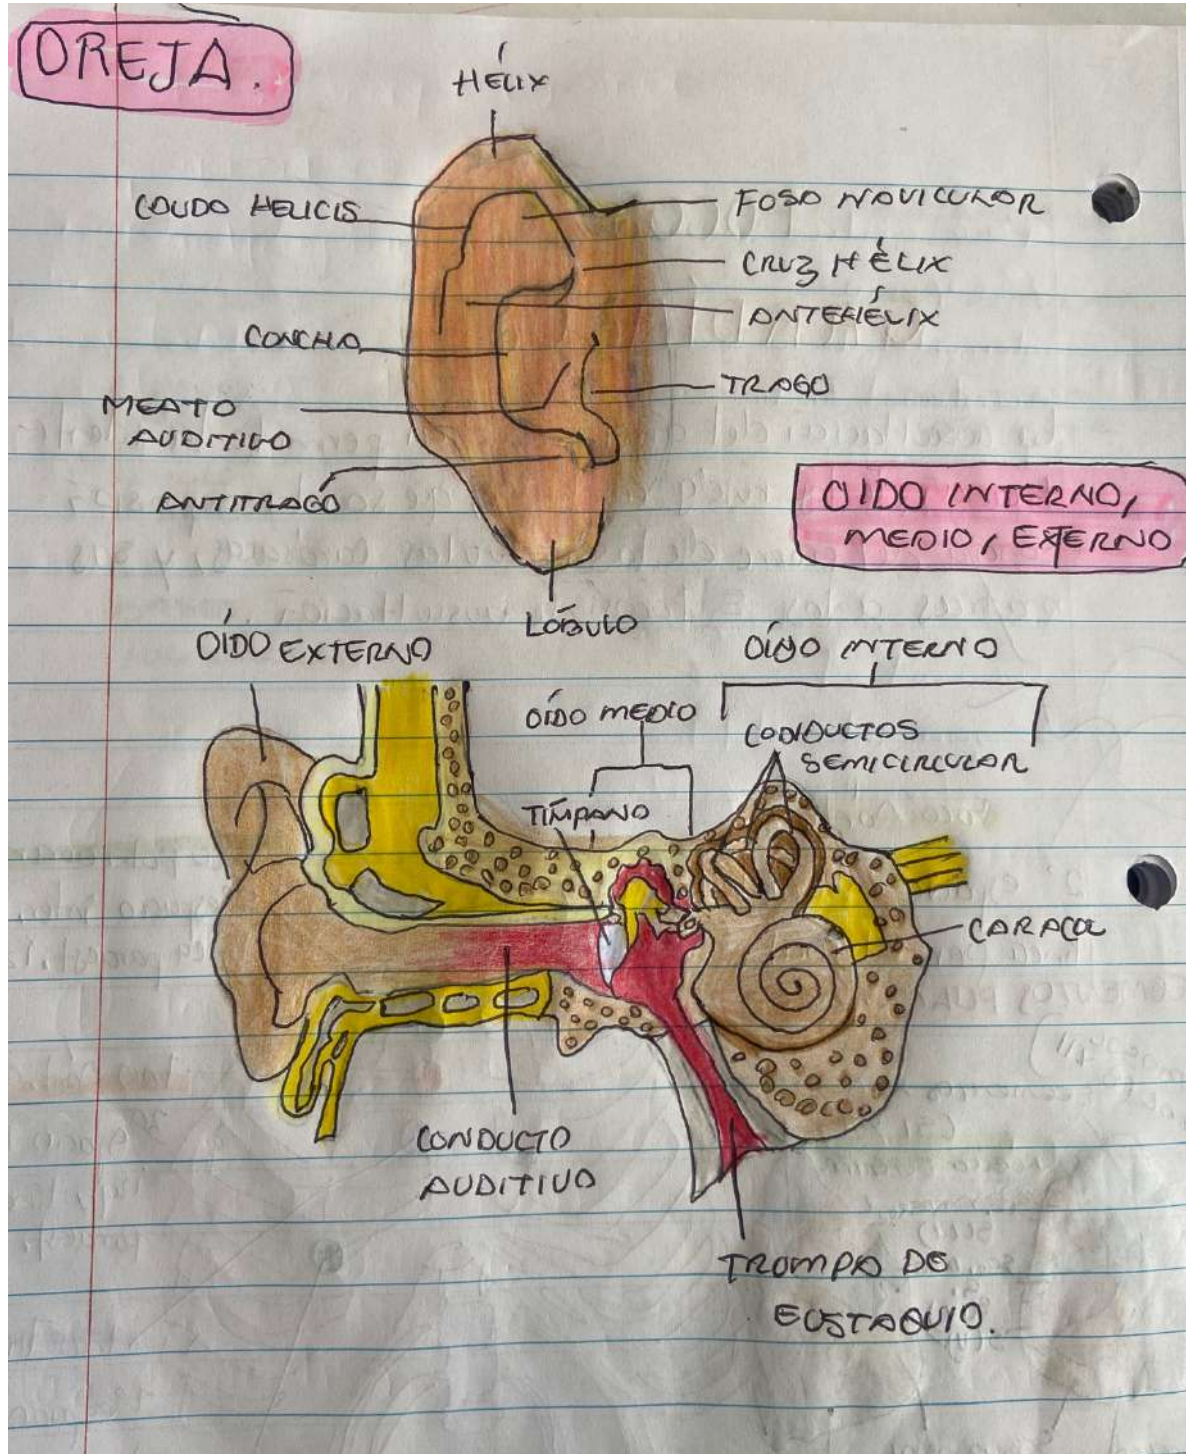 OREJA.
HÉLIX
COUDO HELICIS
FOSO NAVICULAR
CRUZ HÉLIX
ANTEHÉLIX
CONCHA
TRAGO
MEATO
AUDITIVO
ANTITRAGO
LÓBULO
OIDO INTERNO,
MEDIO, EXTERNO
OÍDO EXTERNO
OÍDO MEDIO
OÍDO INTERNO
CONDUCTOS
SEMICIRCULAR
TÍMPANO
CARACOL
CONDUCTO
AUDITIVO
TROMPA DE
EUSTAQUIO.